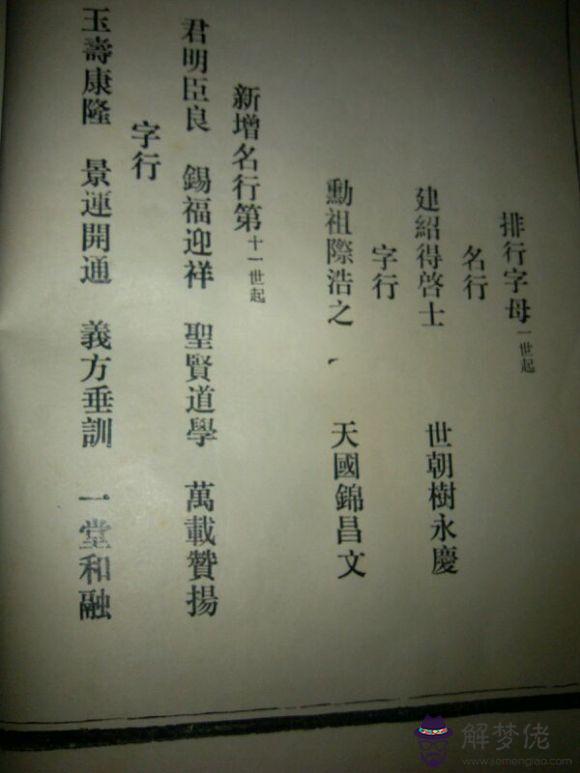 排行字母一世起
名行
建紹得啓士　世朝樹永慶
字行
勳祖際浩之　天國錦昌文
新增名行第十一世起
君明臣良　錫福迎祥　聖賢道學　萬載贊揚
字行
玉壽康隆　景運開通　義方垂訓　一堂和融
解梦佬
www.somengtao.com